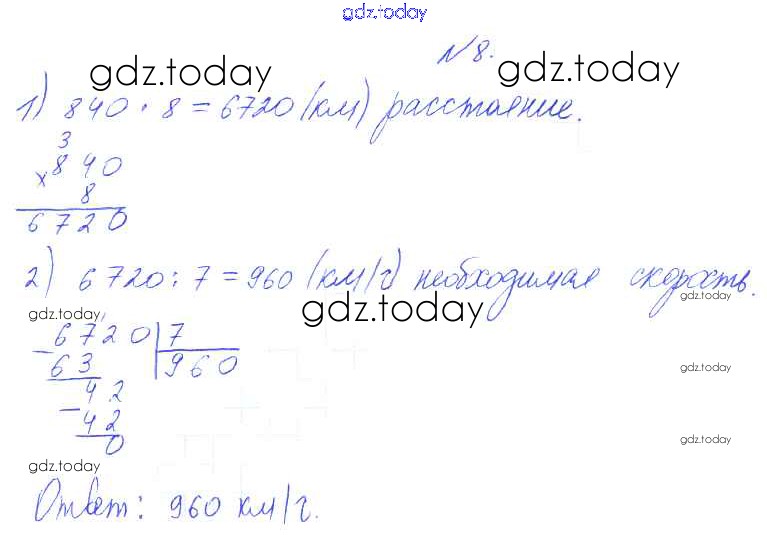 gdz.today
№8.
gdz.today
gdz.today
1) 840 · 8 = 6720 (км) расстояние.
3
× 840
8
6720
2) 6720 : 7 = 960 (км/ч) необходимая скорость.
gdz.today
gdz.today
gdz.today
− 6720 | 7
63 | 960
gdz.today
42
− 42
gdz.today
0
gdz.today
Ответ: 960 км/ч.